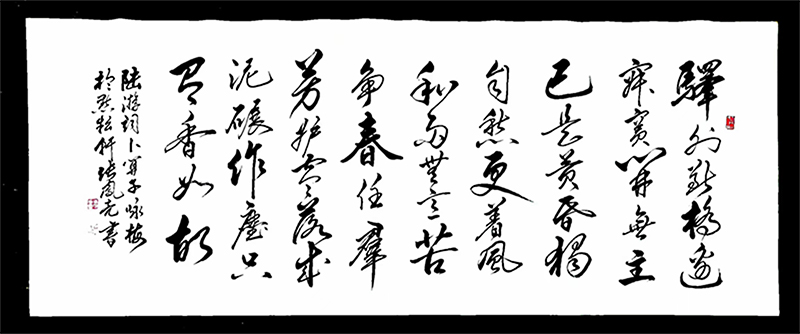 驛外斷橋邊
寂寞開無主
已是黄昏獨
自愁更着風
和雨無意苦
争春任羣
芳妒零落成
泥碾作塵只
有香如故
陸游詞卜算子咏梅
於松軒張鳳書